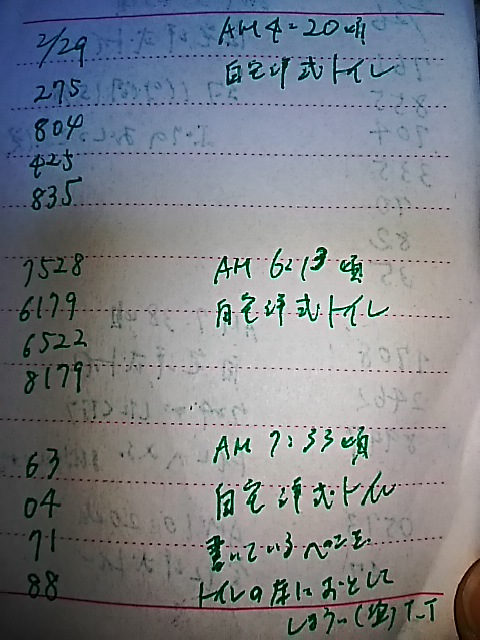 2/29 AM 4:20 頃
275 自宅洋式トイレ
804
425
835
7528 AM 6:13 頃
6179 自宅洋式トイレ
6522
8179
63 AM 7:33 頃
04 自宅洋式トイレ
71 書いているペンを
88 トイレの床におとして
しまう…(泣) T-T